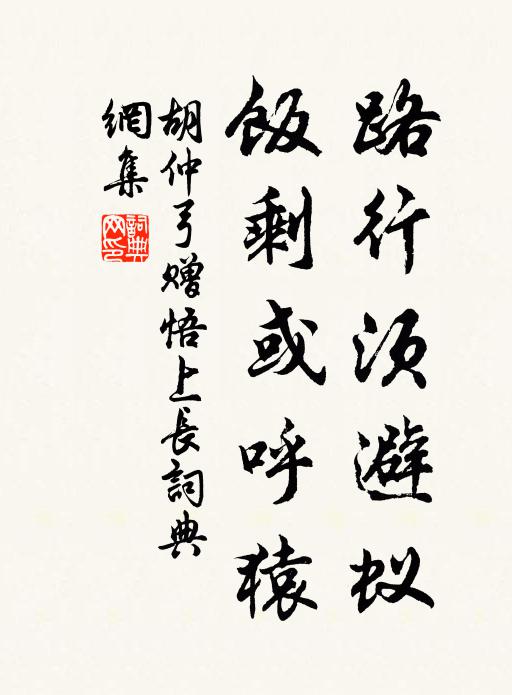 路行须避蚁
飯剩或呼猿
胡仲弓赠悟上長詞典
網集
詞典
网印